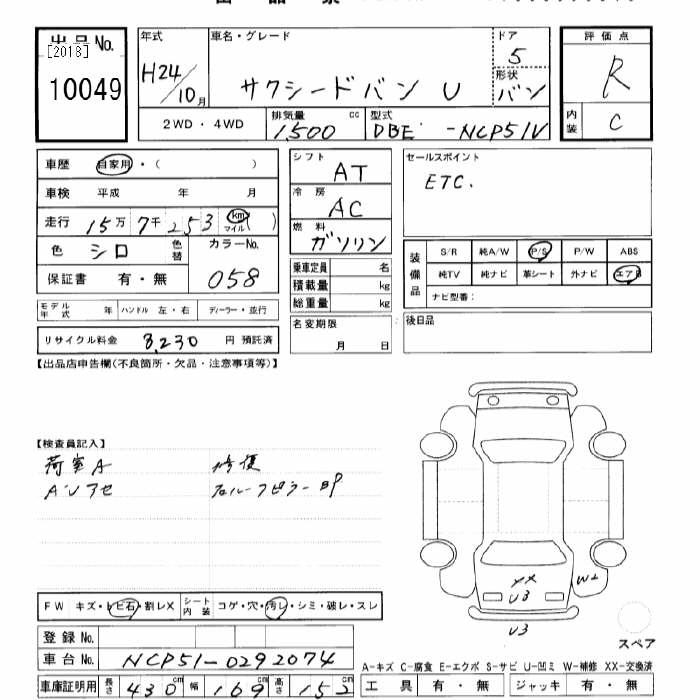 出品No.
[2013]
10049
年式
H24/10月
車名・グレード
サクシードバン U
ドア
5
形状
バン
評価点
R
内装
C
2WD・4WD
排気量 cc
1,500
型式
DBE -NCP51V
車歴 自家用・( )
車検 平成 年 月
走行 15万7千253 km マイル ( )
色 シロ 色替
カラーNo.
058
保証書 有・無
シフト
AT
冷房
AC
燃料
ガソリン
セールスポイント
ETC.
装備品
S/R 純A/W P/S P/W ABS
純TV 純ナビ 革シート 外ナビ エアB
ナビ型番:
乗車定員 名
積載量 kg
総重量 kg
モデル年式 年 ハンドル 左・右 ディーラー・並行
名変期限
月 日
後日品
リサイクル料金 8,230 円 預託済
【出品店申告欄(不良箇所・欠品・注意事項等)】
【検査員記入】
荷室A 修復
Aソアセ
XX
U3
W2
U3
FW キズ・トビ石・割レX シート内装 コゲ・穴・汚レ・シミ・破レ・スレ
スペア
登録No.
車台No. NCP51-0292074
A-キズ C-腐食 E-エクボ S-サビ U-凹ミ W-補修 XX-交換済
車庫証明用 長さ 430cm 幅 169cm 高さ 152
工具 有・無 ジャッキ 有・無